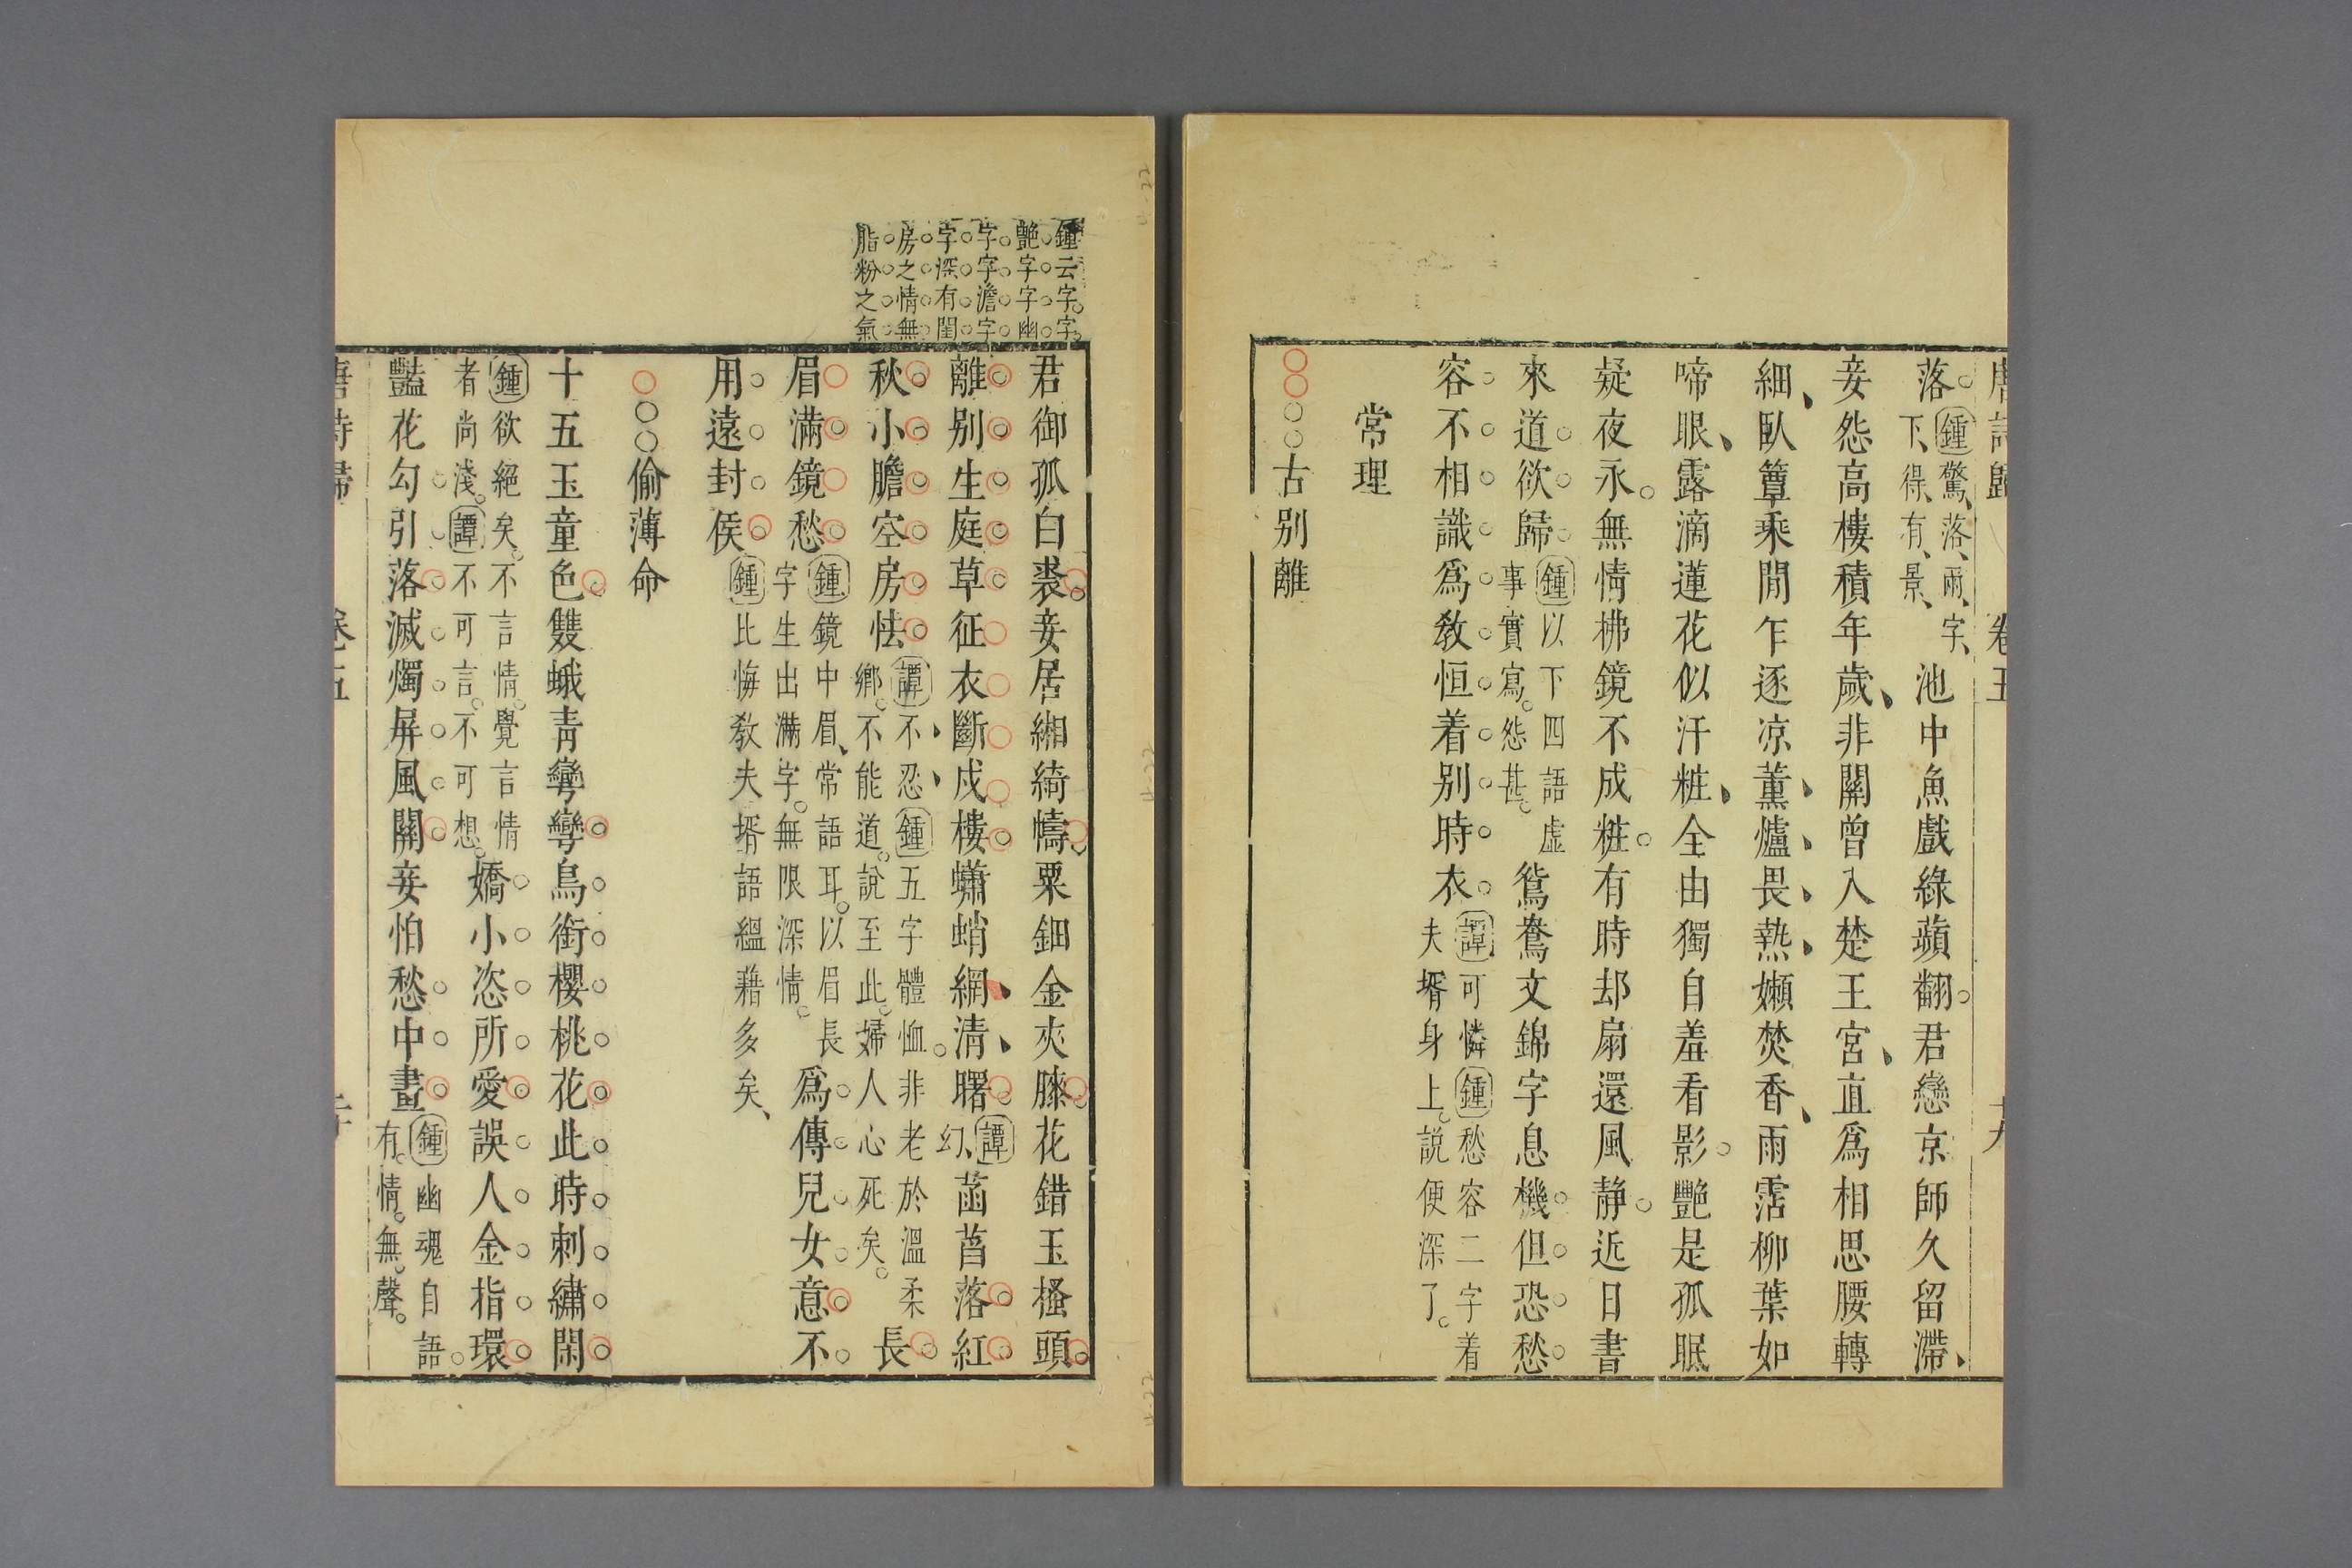 唐詩歸 卷五 十九
落鍾驚落雨字下得有景池中魚戲綠蘋翻君戀京師久留滯
妾怨高樓積年歲非關曾入楚王宮直爲相思腰轉
細臥簟乘閒乍逐凉薰爐畏熱嬾焚香雨霑柳葉如
啼眼露滴蓮花似汗粧全由獨自羞看影艷是孤眠
疑夜永無情拂鏡不成粧有時却扇還風静近日書
來道欲歸鍾以下四語虛事實寫怨甚鴛鴦文錦字息機但恐愁
容不相識爲教恒着别時衣譚可憐鍾愁容二字着夫壻身上說便深了
常理
古别離
鍾云字字
艷字字幽
字字澹字
字深有閨
房之情無
脂粉之氣
君御孤白裘妾居緗綺幬粟鈿金夾膝花錯玉搔頭
離别生庭草征衣斷戍樓蠨蛸網清曙譚幻菡萏落紅
秋小膽空房怯譚不忍鍾五字體恤非老於溫柔鄉不能道說至此婦人心死矣長
眉滿鏡愁鍾鏡中眉常語耳以眉長字生出滿字無限深情爲傳兒女意不
用遠封侯鍾比悔教夫壻語縕藉多矣
偷薄命
十五玉童色雙蛾青彎彎鳥銜櫻桃花此時刺繡閑
鍾欲絕矣不言情覺言情者尚淺譚不可言不可想嬌小恣所愛誤人金指環
豔花勾引落滅燭屏風關妾怕愁中畫鍾幽魂自語有情無聲
唐詩歸 卷五